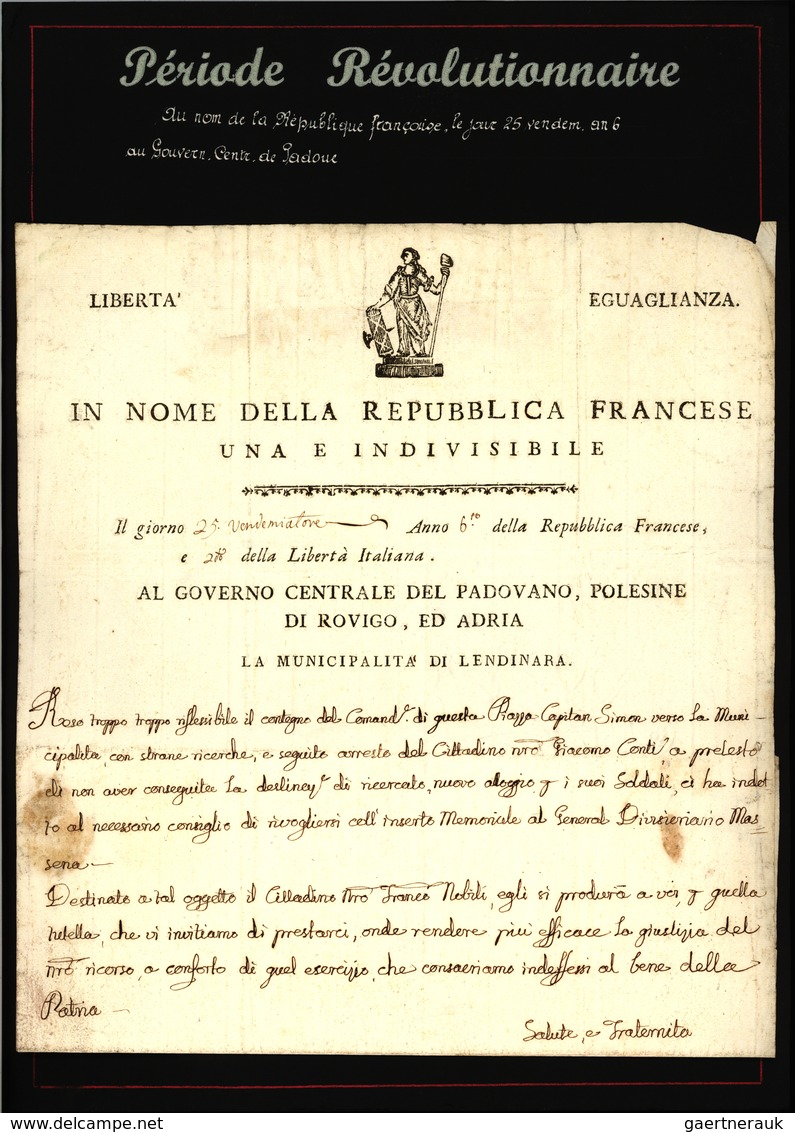 Période Révolutionnaire
Au nom de la République française, le jour 25 vendem. an 6
au Gouvern. Centr. de Padoue
LIBERTA'
EGUAGLIANZA.
IN NOME DELLA REPUBBLICA FRANCESE
UNA E INDIVISIBILE
Il giorno 25. Vendemiatore Anno 6.to della Repubblica Francese,
e 2do della Libertà Italiana.
AL GOVERNO CENTRALE DEL PADOVANO, POLESINE
DI ROVIGO, ED ADRIA
LA MUNICIPALITA' DI LENDINARA.
Reso troppo troppo riflessibile il contegno del Comand.e di questa Piazza Capitan Simon verso la Muni-
cipalità, con strane ricerche, e seguito arresto del Cittadino nro Giacomo Conti, a pretesto
di non aver conseguita la di ricercato, nuovo alogio, i suoi Soldati, ci ha indot
to al necessario consiglio di rivogliersi coll' inserto Memoriale al General Divisionario Mas
sena —
Destinato a tal oggetto il Cittadino Nro Franco Nobili, egli si produrà a voi, quella
tutella, che vi invitiamo di prestarci, onde rendere più efficace la giustizia del
nro ricorso, a conforto di quel esercizio, che consacriamo indeffessi al bene della
Patria —
Salute, e Fraternita
delcampe.net
gaertnerauk